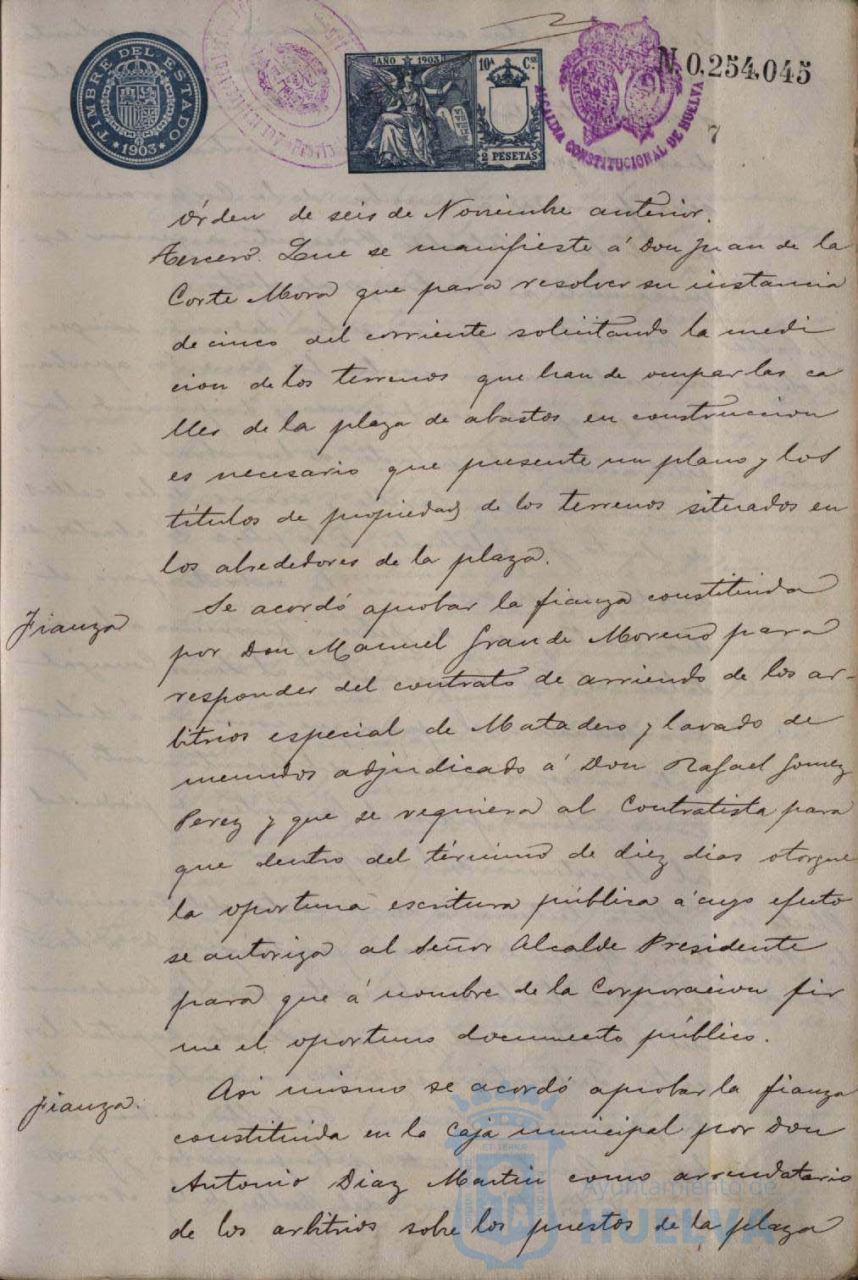 TIMBRE DEL ESTADO
*1903*
AÑO 1903
10ª Cˢᵉ
2 PESETAS
ALCALDIA CONSTITUCIONAL DE HUELVA
N.0,254,045
7
órden de seis de Noviembre anterior.
Tercero. Que se manifieste á Don Juan de la
Corte Mora que para resolver su instancia
de cinco del corriente solicitando la medi
cion de los terrenos que han de ocupar las ca
lles de la plaza de abastos en construccion
es necesario que presente un plano y los
títulos de propiedad de los terrenos situados en
los alrededores de la plaza.
Fianza
Se acordó aprobar la fianza constituida
por Don Manuel Grande Moreno para
responder del contrato de arriendo de los ar-
bitrios especial de Matadero y lavado de
menudos adjudicado á Don Rafael Gomez
Perez y que se requiera al Contratista para
que dentro del término de diez dias otorgue
la oportuna escritura pública á cuyo efecto
se autoriza al Señor Alcalde Presidente
para que á nombre de la Corporacion fir
me el oportuno documento público.
Fianza.
Asi mismo se acordó aprobar la fianza
constituida en la Caja municipal por Don
Antonio Diaz Martin como arrendatario
de los arbitrios sobre los puestos de la plaza
Ayuntamiento de
HUELVA